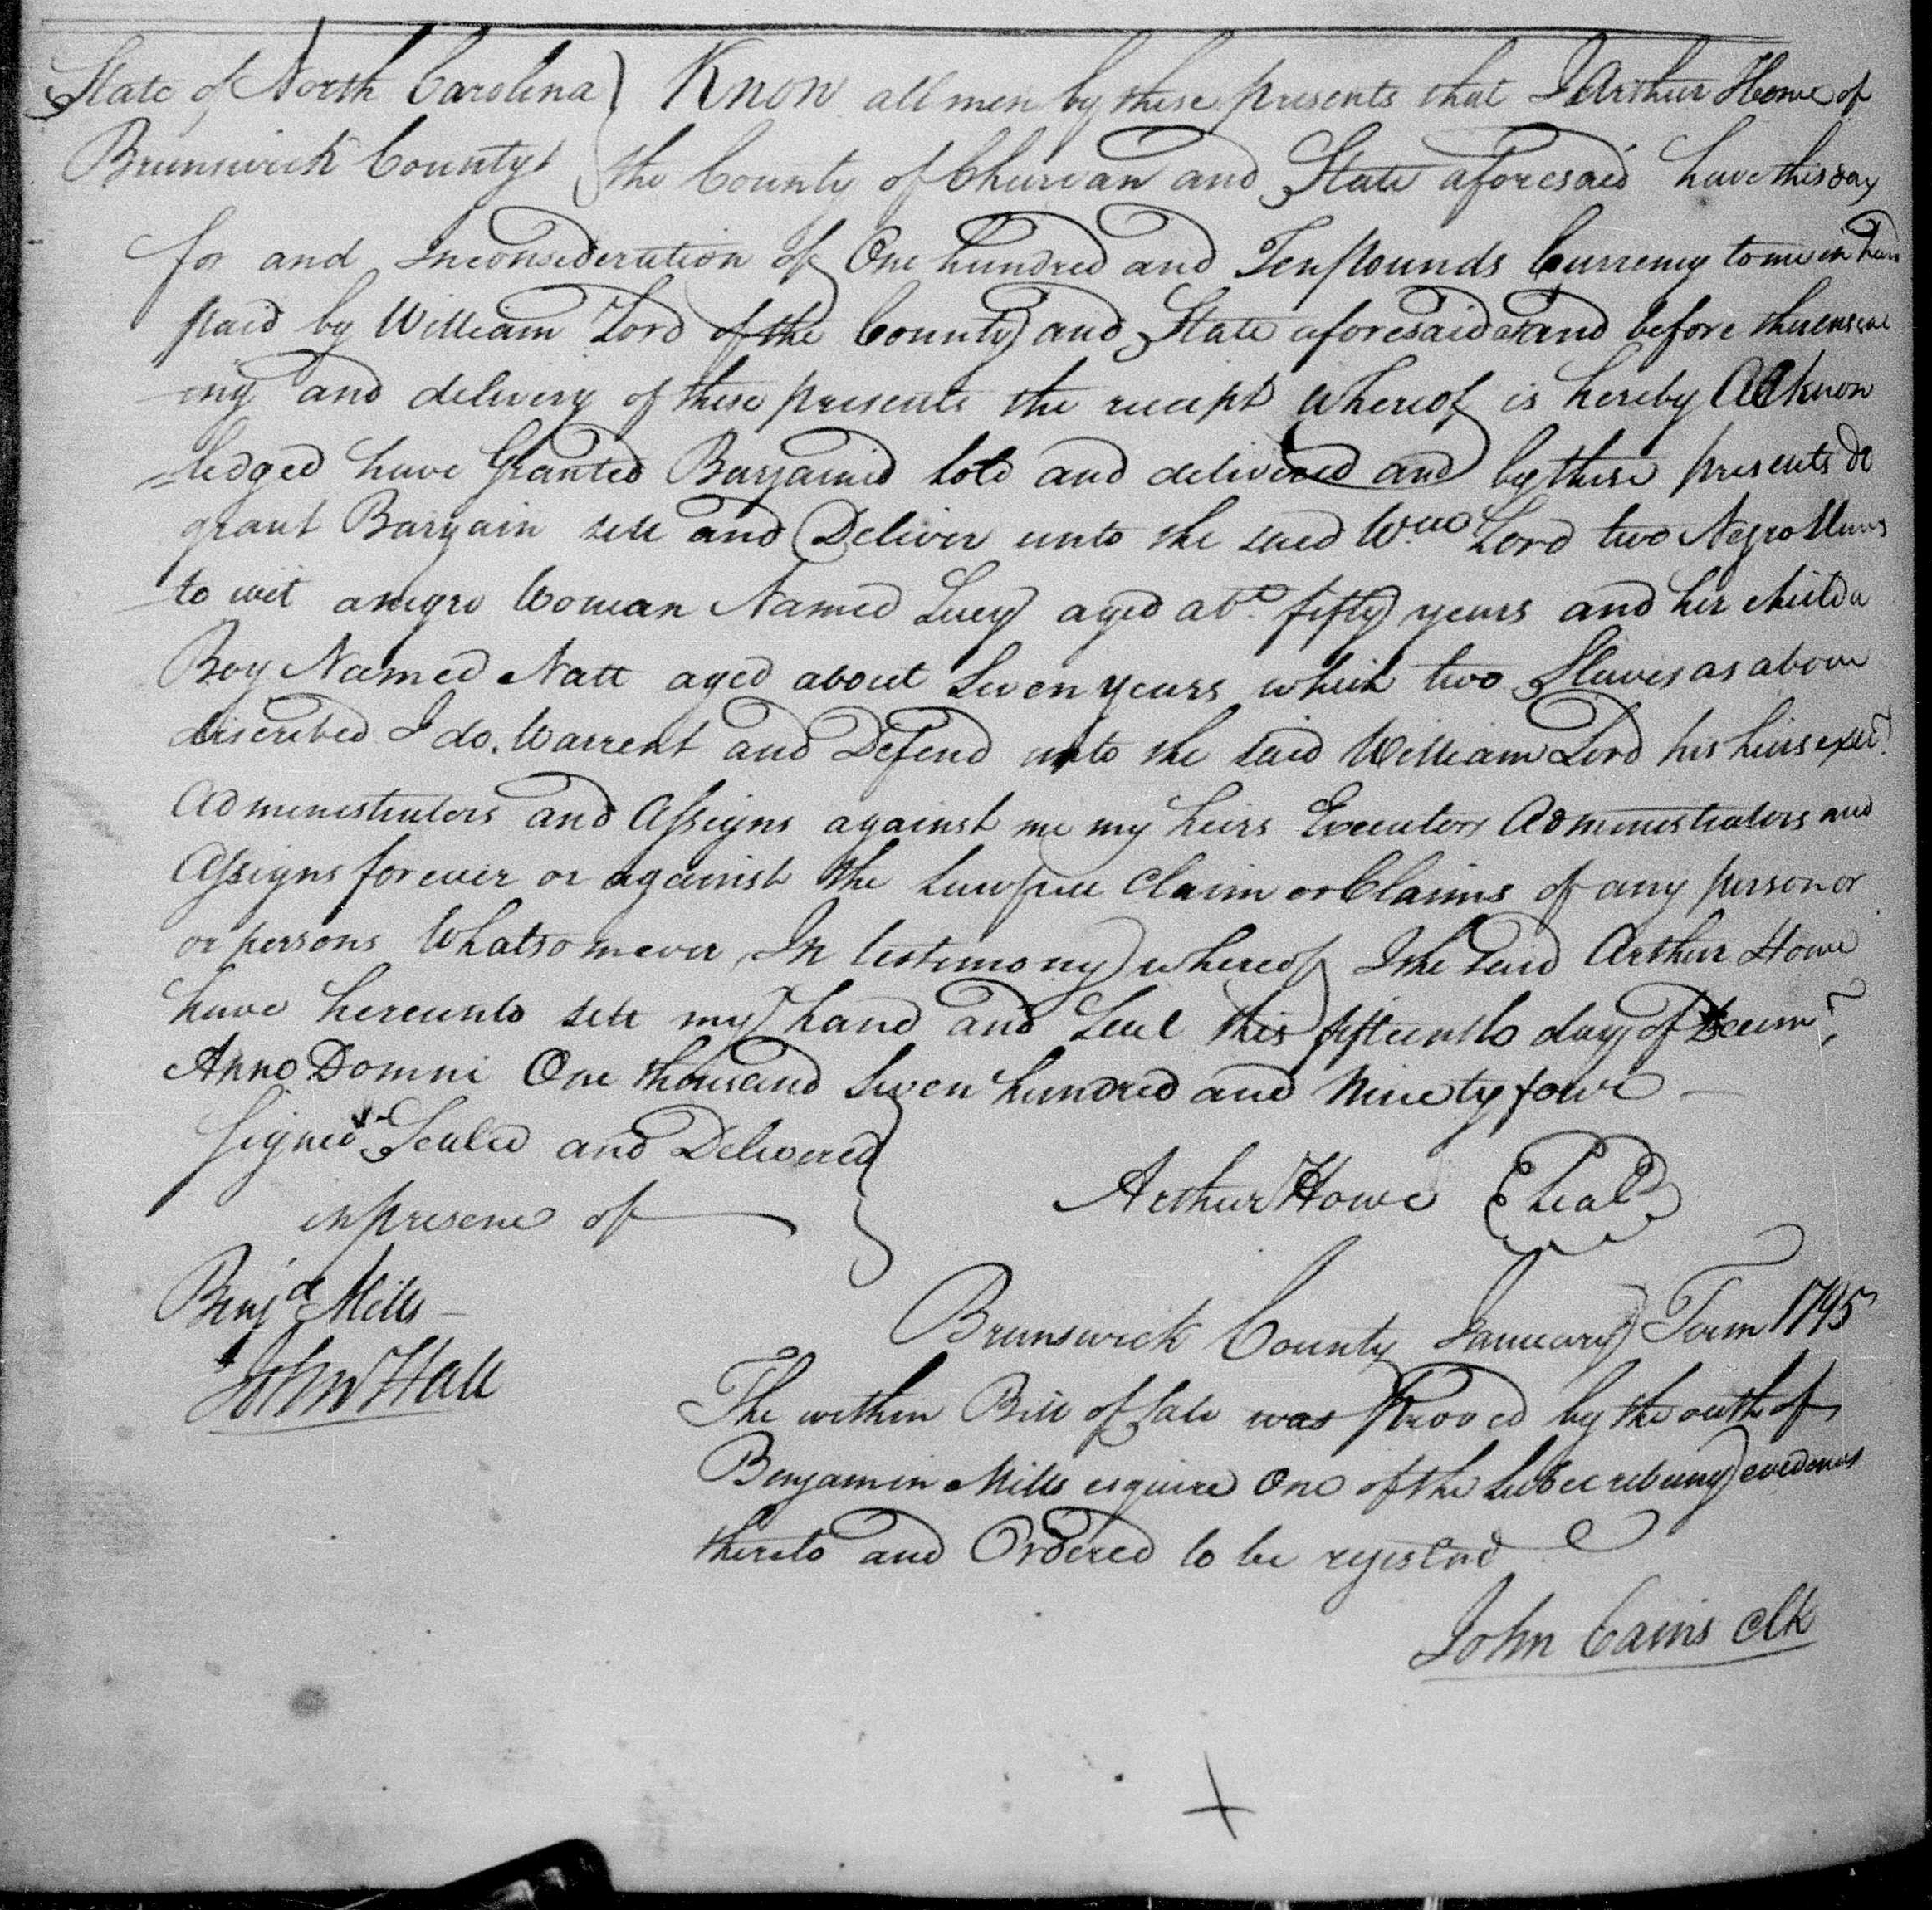 State of North Carolina } Know all men by these presents that I Arthur Howe of
Brunswick County } the County of Churvan and State aforesaid have this day
for and Inconsideration of One hundred and Ten pounds Currency to me in hand
paid by William Lord of the County and State aforesaid at and before the enseal
ing and delivery of these presents the receipt whereof is hereby Acknow
=ledged have Granted Bargained Sold and delivered and by these presents do
grant Bargain sell and Deliver unto the said Wm Lord two Negro Slaves
to wit a negro Woman Named Lucy aged abo. fifty years and her child a
Boy Named Natt aged about Seven years which two Slaves as above
discribed I do. Warrent and Defend unto the said William Lord his heirs
Administrators and Assigns against me my heirs Executors Administrators and
Assigns forever or against the Lawfull Claim or Claims of any person or
or persons Whatsomever In testimony whereof I the said Arthur Howe
have hereunto sett my hand and Seal this fifteenth day of Decemr
Anno Domni One thousand Seven hundred and Ninety four —
Signed Sealed and Delivered
in presence of
Arthur Howe Seal
Benja Mills —
John Hall
Brunswick County January Term 1795
The within Bill of Sale was Proved by the oath of
Benjamin Mills esquire One of the Subscribing evedences
thereto and Ordered to be registerd
John Cains clk